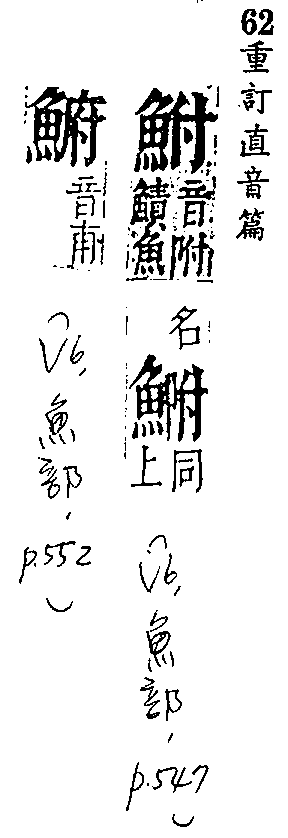 62重訂直音篇
鮒
音附
鰿魚
名
同
上
(V6,魚部,p.547)
音甫
(V6,魚部,p.552)